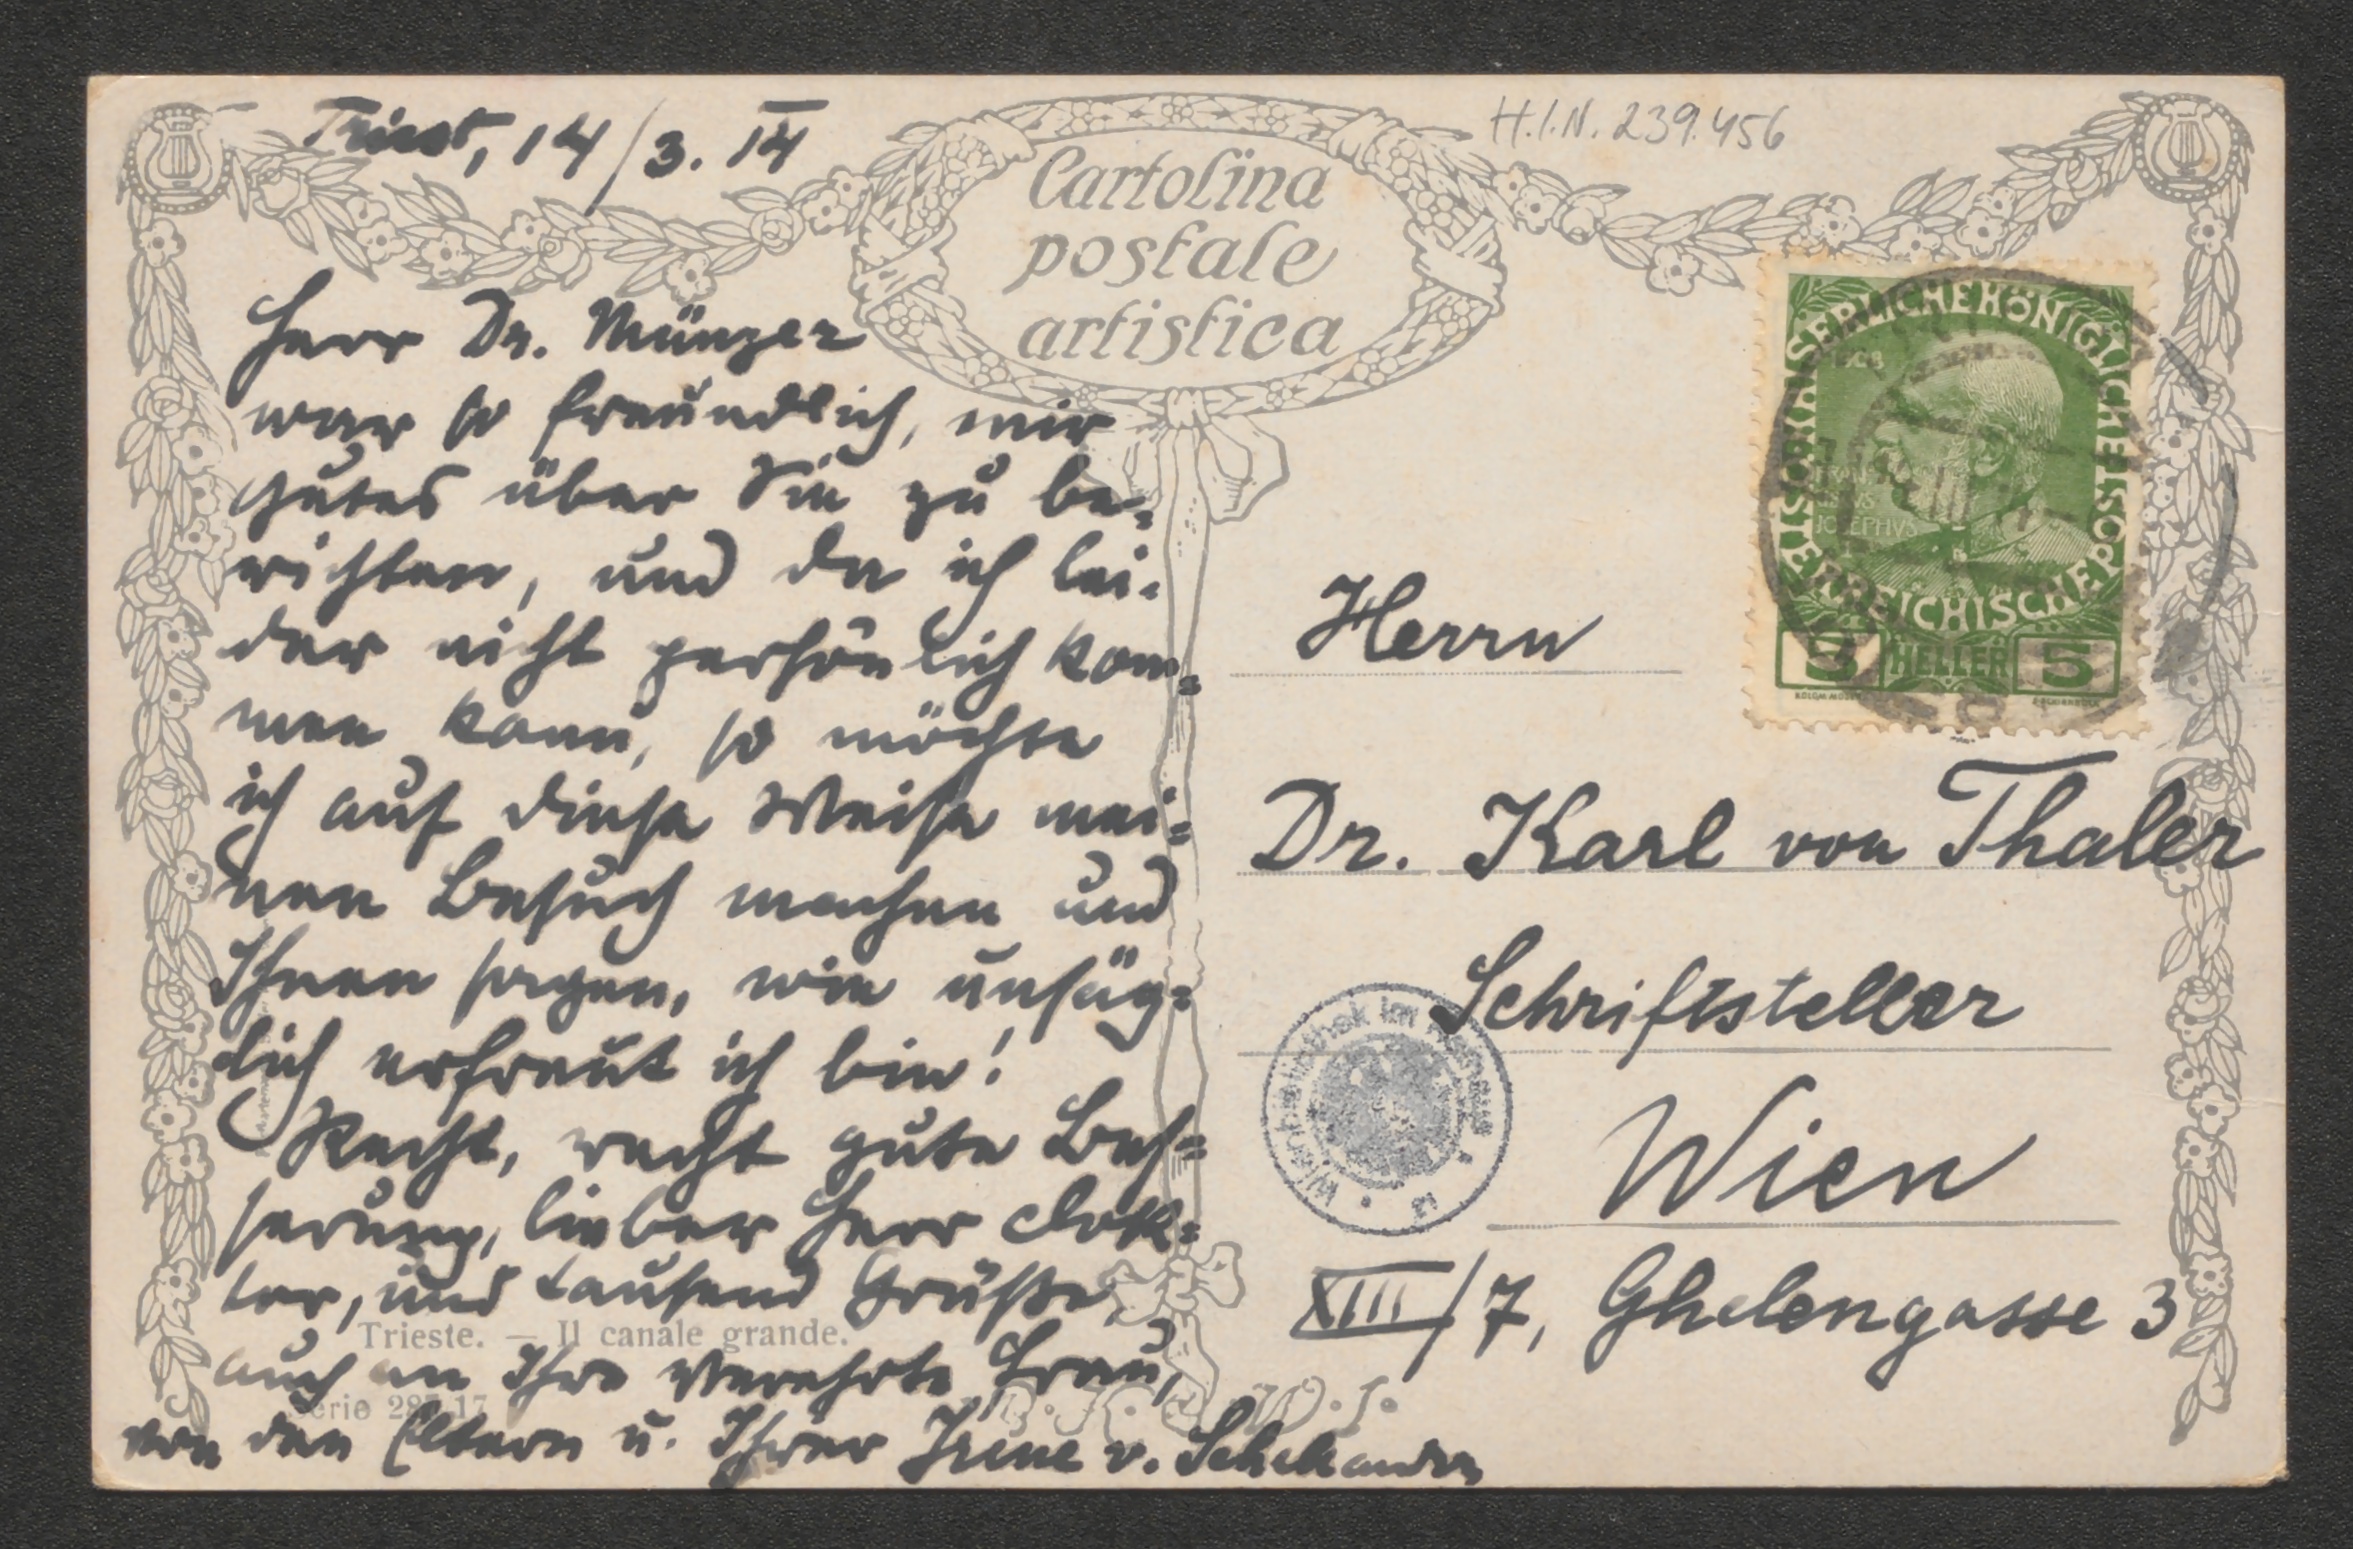 Triest, 14/3. 14
H.I.N. 239.456
Cartolina
postale
artistica
Herr Dr. Münzer
war so freundlich, mir
Gutes über Sie zu be-
richten, und da ich lei-
der nicht persönlich kom-
men kann, so möchte
ich auf diese Weise mei-
nen Besuch machen und
Ihnen sagen, wie unsäg-
lich erfreut ich bin!
Recht, recht gute Bes-
serung, lieber Herr Dok-
tor, und tausend Grüße,
auch an Ihre verehrte Frau,
von den Eltern u. Ihrer Irene v. Schellander
Trieste. — Il canale grande.
Serie 287 17
KAISERLICHE KÖNIGLICHE ÖSTERREICHISCHE POST
1908
JOSEPHVS
5 HELLER 5
Herrn
Dr. Karl von Thaler
Schriftsteller
Wien
XIII/7, Ghelengasse 3